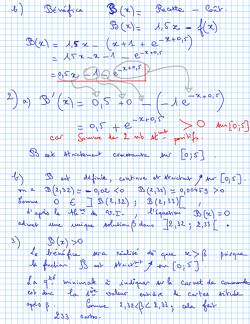 b) Bénéfice B(x) = Recette - Coût.
B(x) = 1,5x - f(x)
B(x) = 1,5x - (x + 1 + e^{-x+0,5})
= 1,5x - x - 1 - e^{-x+0,5}
= 0,5x - 1 - e^{-x+0,5}
2) a) B'(x) = 0,5 + 0 - (-1 e^{-x+0,5})
= 0,5 + e^{-x+0,5} > 0 sur [0;5]
car somme de 2 nb strict positifs.
B est strictement croissante sur [0;5]
b) B est définie, continue et strict sur [0;5].
B(2,32) ≈ -0,02 < 0 B(2,33) ≈ 0,00459 > 0
Comme 0 ∈ ]B(2,32); B(2,33)[,
d'après le th des V.I., l'équation B(x) = 0
admet une unique solution β dans ]2,32; 2,33[.
3) B(x) > 0
Le bénéfice sera réalisé dès que x > β puisque
la fonction B est strict sur [0;5]
La qté minimale à indiquer sur le carnet de commandes
est donc la 1ère valeur entière de cartes située
après β. Comme 2,32 < β < 2,33, cela fait
233 cartes.